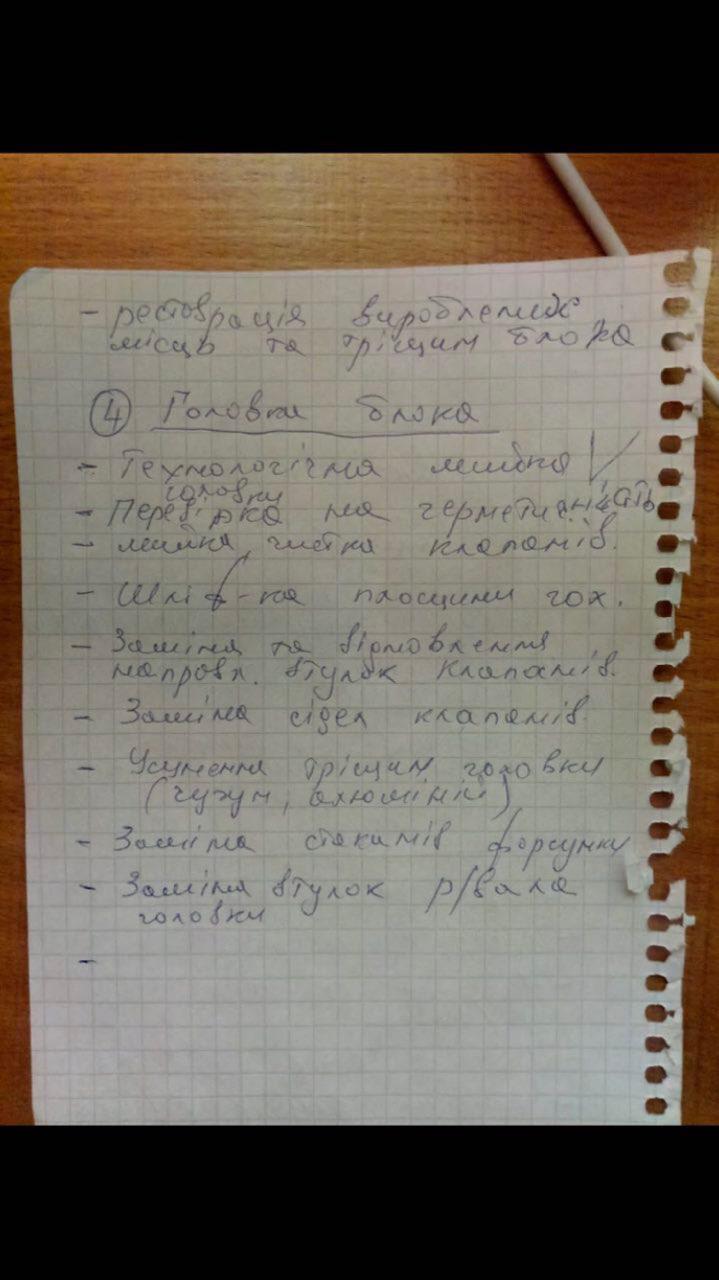 - реставрація вироблених
місць та тріщин блока
4 Головки блока
- Технологічна мийка
головки
- Перевірка на герметичність
- мийка, чистка клапанів.
- Шліф-ка площини гол.
- Заміна та відновлення
направл. втулок клапанів.
- Заміна сідел клапанів.
- Усунення тріщин головки
(чугун, алюміній)
- Заміна стаканів форсунки
- Заміна втулок р/вала
головки
-